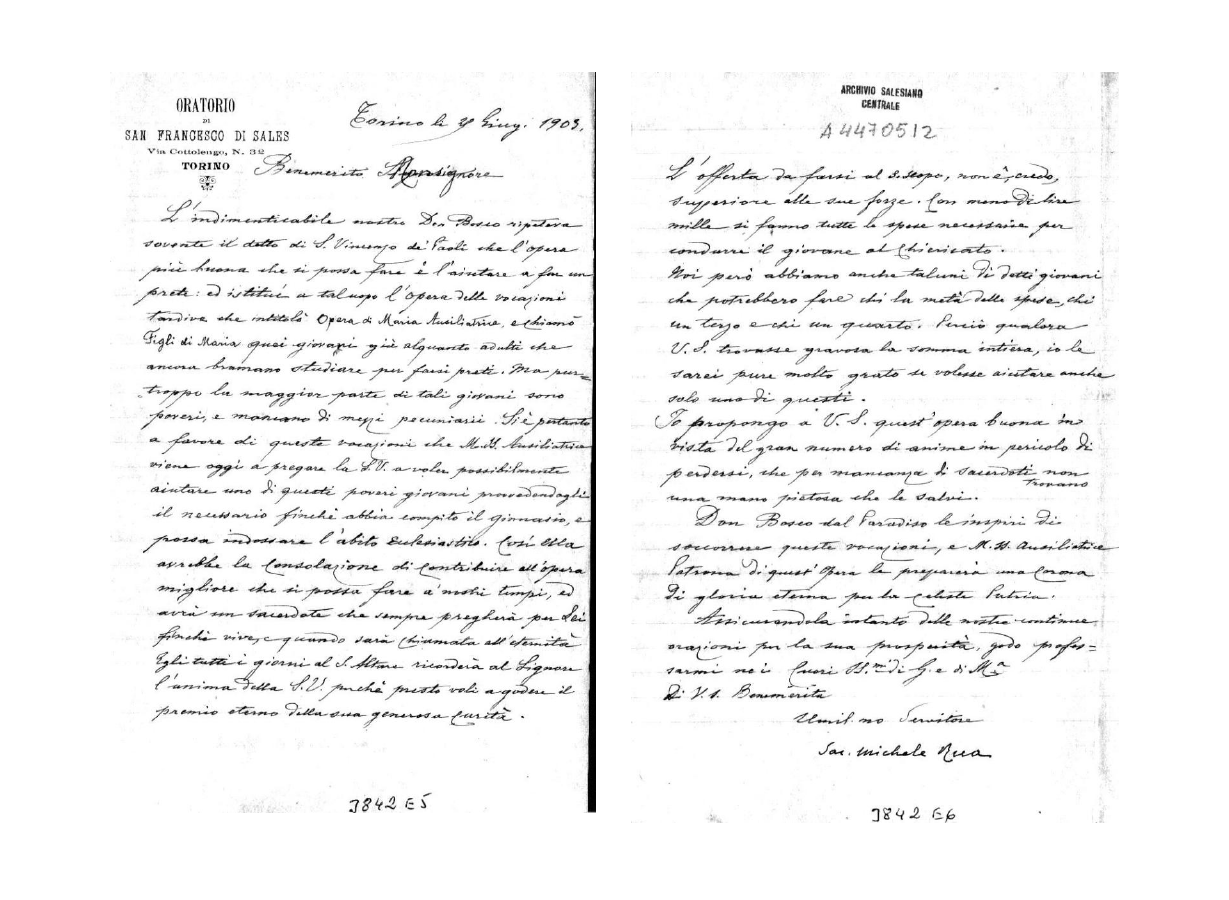 ORATORIO
DI
SAN FRANCESCO DI SALES
Via Cottolengo, N. 32
TORINO
Torino li Giug. 1903.
Benemerito Monsignore
L'indimenticabile nostro Don Bosco ripeteva
sovente il detto di S. Vincenzo de' Paoli che l'opera
più buona che si possa fare è l'aiutare a fare un
prete: ed istituì a tal uopo l'Opera delle vocazioni
tardive che intitolò Opera di Maria Ausiliatrice, e chiamò
Figli di Maria quei giovani già alquanto adulti che
ancora bramano studiare per farsi preti. Ma pur=
troppo la maggior parte di tali giovani sono
poveri, e mancano di mezzi pecuniarii. Si è pertanto
a favore di queste vocazioni che M. SS. Ausiliatrice
viene oggi a pregare la S.V. a voler possibilmente
aiutare uno di questi poveri giovani provvedendogli
il necessario finchè abbia compito il ginnasio, e
possa indossare l'abito Ecclesiastico. Così Ella
avrebbe la Consolazione di Contribuire all'opera
migliore che si possa fare a' nostri tempi, ed
avrà un sacerdote che sempre pregherà per Lei
finchè vive, e quando sarà chiamata all'eternità
Egli tutti i giorni al S. Altare ricorderà al Signore
l'anima della S.V. perchè presto voli a godere il
premio eterno della sua generosa Carità.
3842 E5
ARCHIVIO SALESIANO
CENTRALE
A4470512
L'offerta da farsi al S. scopo, non è, credo,
superiore alle sue forze. Con meno di lire
mille si fanno tutte le spese necessarie per
condurre il giovane al Chiericato.
Noi però abbiamo anche taluni di detti giovani
che potrebbero fare chi la metà delle spese, chi
un terzo e chi un quarto. Perciò qualora
V.S. trovasse gravosa la somma intiera, io le
sarei pure molto grato se volesse aiutare anche
solo uno di questi.
Io propongo a V.S. quest'opera buona in
vista del gran numero di anime in pericolo di
perdersi, che per mancanza di sacerdoti non
trovano
una mano pietosa che le salvi.
Don Bosco dal Paradiso le inspiri di
soccorrere queste vocazioni, e M. SS. Ausiliatrice
Patrona di quest'Opera le preparerà una Corona
di gloria eterna per la Celeste Patria.
Assicurandola intanto delle nostre continue
orazioni per la sua prosperità, godo profes=
sarmi nei Cuori SS.mi di G. e di M.a
Di V.S. Benemerita
Umil.mo Servitore
Sac. Michele Rua
3842 E6